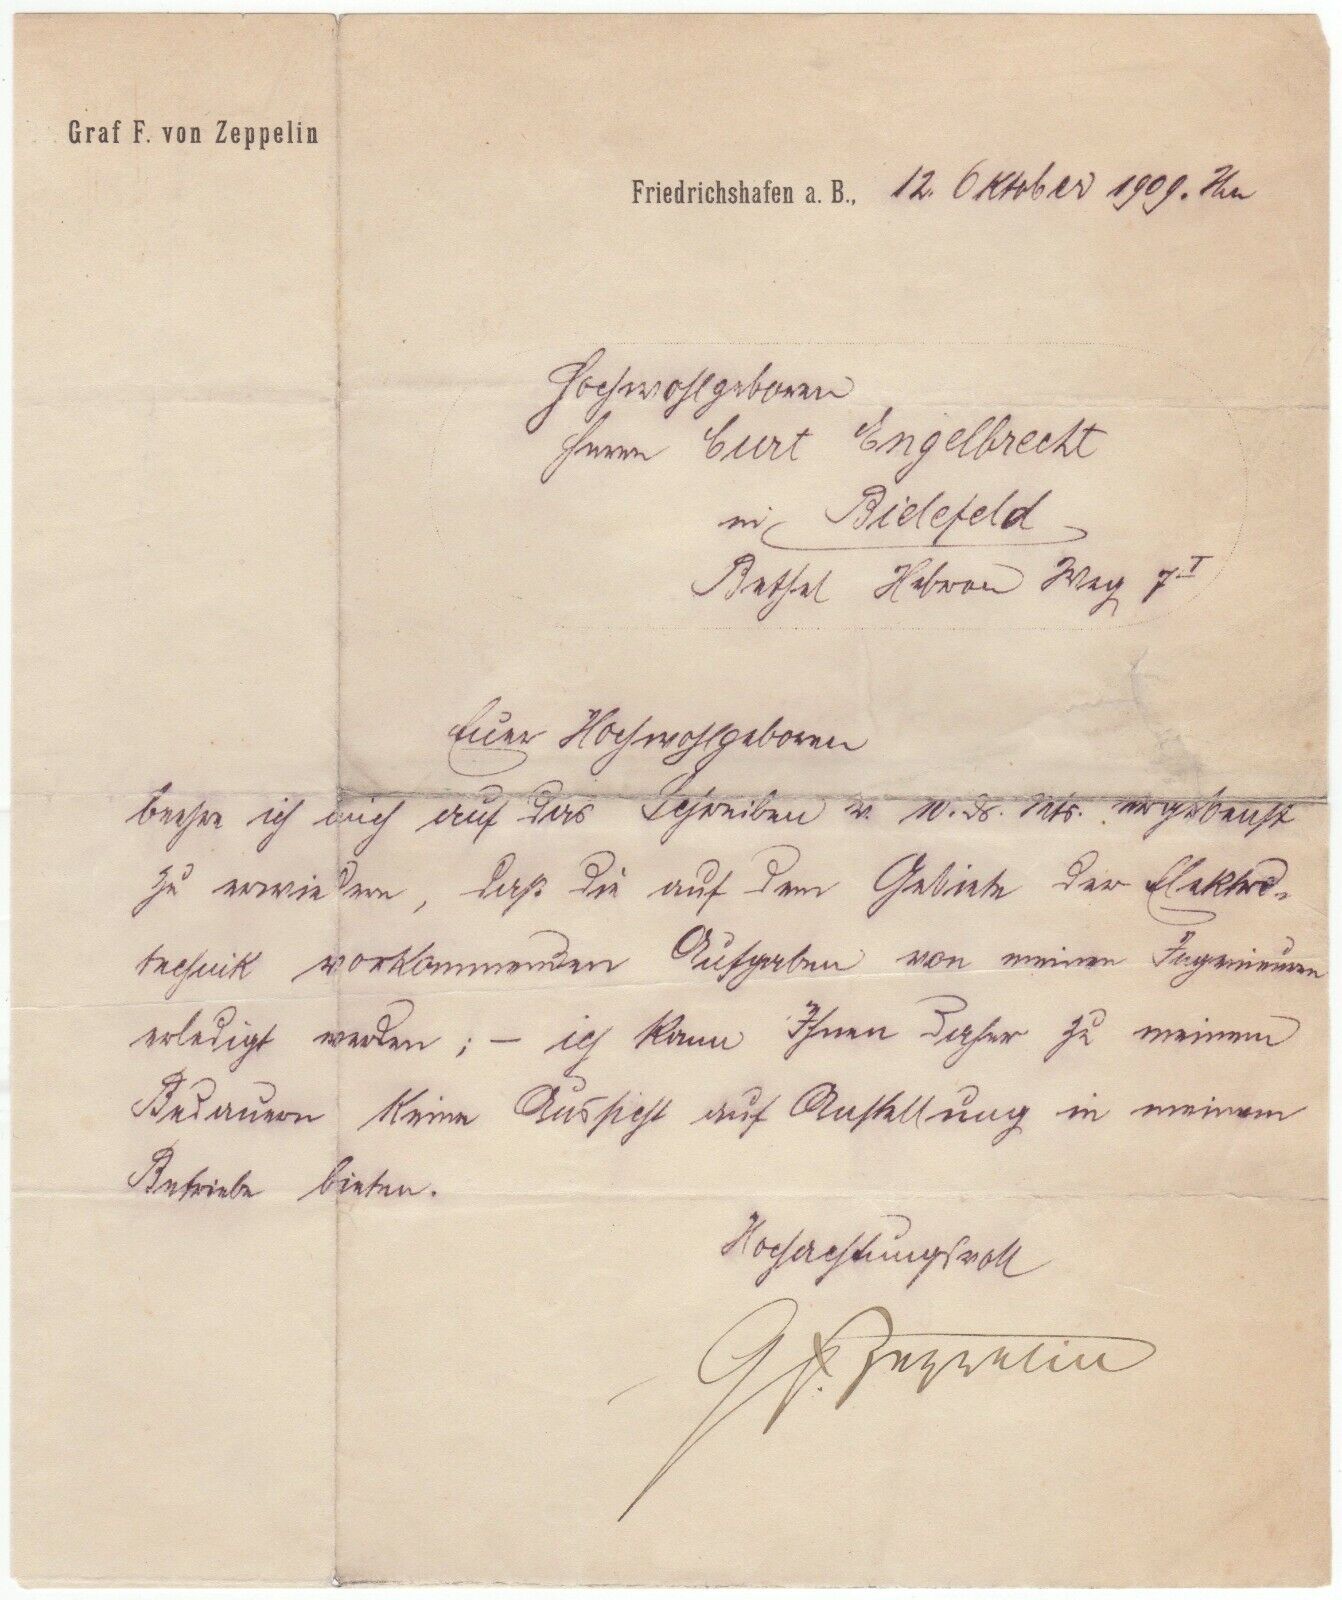 Graf F. von Zeppelin
Friedrichshafen a. B., 12. Oktober 1909.
Hochwohlgeboren
Herrn Curt Engelbrecht
in Bielefeld
Bethel Hebron Weg 7 I
Euer Hochwohlgeboren
beehre ich mich auf das Schreiben v. 10. ds. Mts. ergebenst
zu erwiedern, daß die auf dem Gebiete der Elektro-
technik vorkommenden Aufgaben von meinen Ingenieuren
erledigt werden; – ich kann Ihnen daher zu meinem
Bedauern keine Aussicht auf Anstellung in meinem
Betriebe bieten.
Hochachtungsvoll
Gf. Zeppelin